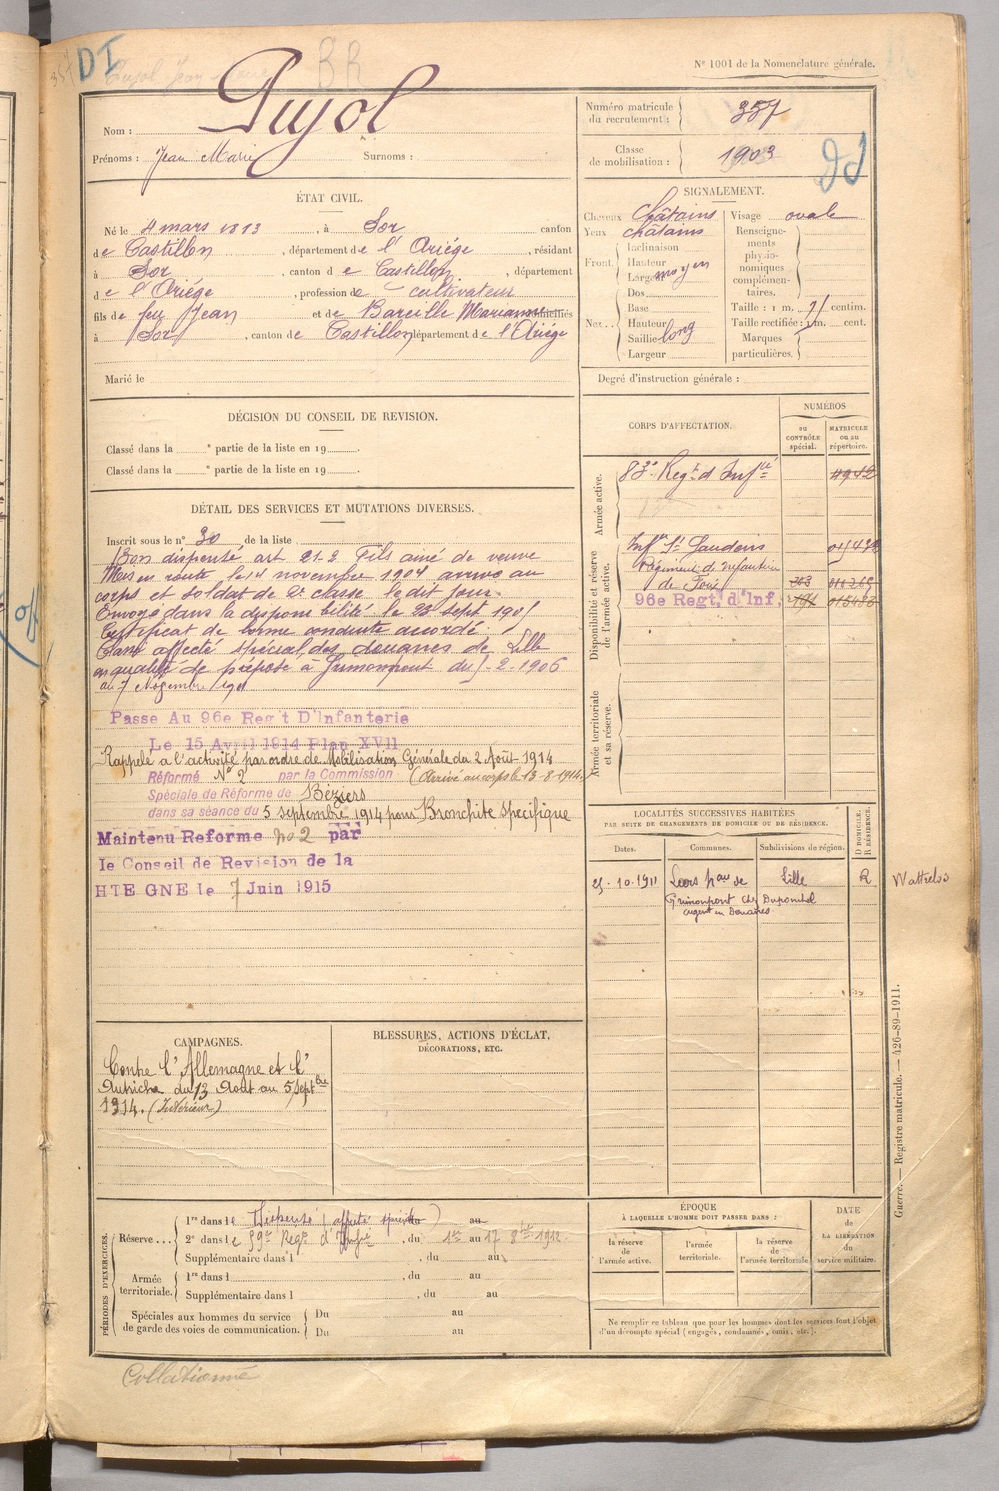 DI
BR
N° 1001 de la Nomenclature générale.
Nom : Pujol
Prénoms : Jean Marie Surnoms :
Numéro matricule du recrutement : 357
Classe de mobilisation : 1903
ÉTAT CIVIL.
Né le 4 mars 1883, à Sor canton
de Castillon, département de l'Ariége, résidant
à Sor, canton de Castillon, département
de l'Ariége, profession de cultivateur
fils de feu Jean et de Bareille Marianne domiciliés
à Sor, canton de Castillon département de l'Ariége
Marié le
SIGNALEMENT.
Cheveux châtains Visage ovale
Yeux châtains
Front. Inclinaison
Hauteur
Largeur moyen
Nez.. Dos
Base
Hauteur
Saillie long
Largeur
Renseignements physionomiques complémentaires.
Taille : 1 m. 71 centim.
Taille rectifiée : 1 m. cent.
Marques particulières.
Degré d'instruction générale :
DÉCISION DU CONSEIL DE REVISION.
Classé dans la e partie de la liste en 19 .
Classé dans la e partie de la liste en 19 .
CORPS D'AFFECTATION.
NUMÉROS
au CONTRÔLE spécial.
MATRICULE ou au répertoire.
Armée active.
83e Regt d'Infie 4942
Disponibilité et réserve de l'armée active.
Infie St Gaudens
Régiment d'Infanterie
de Foix
96e Regt, d'Inf,
Armée territoriale et sa réserve.
DÉTAIL DES SERVICES ET MUTATIONS DIVERSES.
Inscrit sous le n° 30 de la liste
Bon dispensé art 21-2 Fils ainé de veuve
Mis en route le 14 novembre 1904 arrivé au
corps et soldat de 2e classe le dit jour.
Envoyé dans la disponibilité le 23 sept 1905
Certificat de bonne conduite accordé.
Classé affecté spécial des douanes de Lille
en qualité de préposé à Grimonpont du 2-1906
au 7 Novembre 1911
Passe Au 96e Reg't D'Infanterie
Le 15 Avril 1914 Plan XVII
Rappelé à l'activité par ordre de Mobilisation Générale du 2 Août 1914
Réformé N° 2 par la Commission (Arrivé au corps le 13-8-1914)
Spéciale de Réforme de Béziers
dans sa séance du 5 septembre 1914 pour Bronchite spécifique
Maintenu Reforme no 2 par
le Conseil de Revision de la
HTE GNE le 7 Juin 1915
LOCALITÉS SUCCESSIVES HABITÉES
PAR SUITE DE CHANGEMENTS DE DOMICILE OU DE RÉSIDENCE.
Dates. Communes. Subdivisions de région. D DOMICILE. R RÉSIDENCE.
25-10-1911 Leers hau de Lille R Wattrelos
Grimonpont Chez Duponchel
agent des Douanes
CAMPAGNES.
Contre l'Allemagne et l'
Autriche du 13 Août au 5 Septbre
1914. (Intérieur)
BLESSURES, ACTIONS D'ÉCLAT,
DÉCORATIONS, ETC.
PÉRIODES D'EXERCICES.
Réserve... 1re dans le Dispensé (affecté spécial) au
2e dans le 59e Regt d'Infie, du 1er au 17 8bre 1912
Supplémentaire dans l , du au
Armée territoriale. 1re dans l , du au
Supplémentaire dans l , du au
Spéciales aux hommes du service de garde des voies de communication. Du au
Du au
ÉPOQUE
À LAQUELLE L'HOMME DOIT PASSER DANS :
la réserve de l'armée active.
l'armée territoriale.
la réserve de l'armée territoriale
DATE de LA LIBÉRATION du service militaire.
Ne remplir ce tableau que pour les hommes dont les services font l'objet
d'un décompte spécial (engagés, condamnés, omis, etc.).
Guerre. — Registre matricule. — 426-89-1911.
Collationné